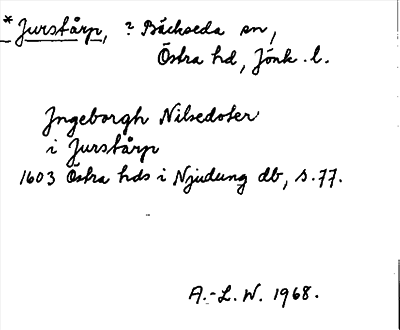 *Jurstårp, ? Bäckseda sn,
Östra hd, Jönk. l.
Jngeborgh Nilsedoter
i Jurstårp
1603 Östra hds i Njudung db, s. 77.
A.-L. W. 1968.